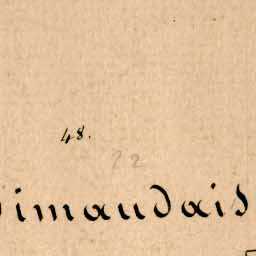 48.
22
imaudais